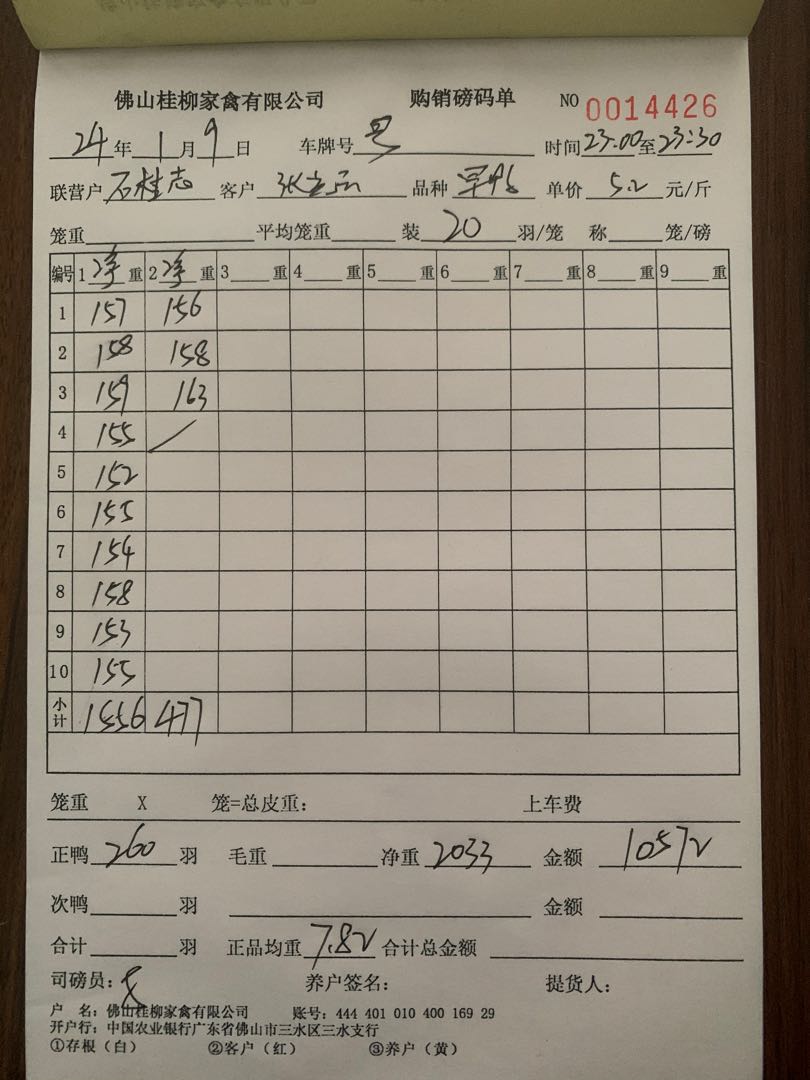 佛山桂柳家禽有限公司 购销磅码单 NO 0014426
24年1月9日 车牌号 时间23:00至23:30
联营户石桂志 客户 张 品种 单价5.2元/斤
笼重 平均笼重 装20羽/笼 称 笼/磅
编号 1净重 2净重 3 重 4 重 5 重 6 重 7 重 8 重 9 重
1 157 156
2 158 158
3 159 163
4 155 /
5 152
6 155
7 154
8 158
9 153
10 155
小计 1556 477
笼重 X 笼=总皮重: 上车费
正鸭260羽 毛重 净重2033 金额10572
次鸭 羽 金额
合计 羽 正品均重7.82 合计总金额
司磅员: 养户签名: 提货人:
户 名: 佛山桂柳家禽有限公司 账号: 444 401 010 400 169 29
开户行: 中国农业银行广东省佛山市三水区三水支行
①存根(白) ②客户(红) ③养户(黄)